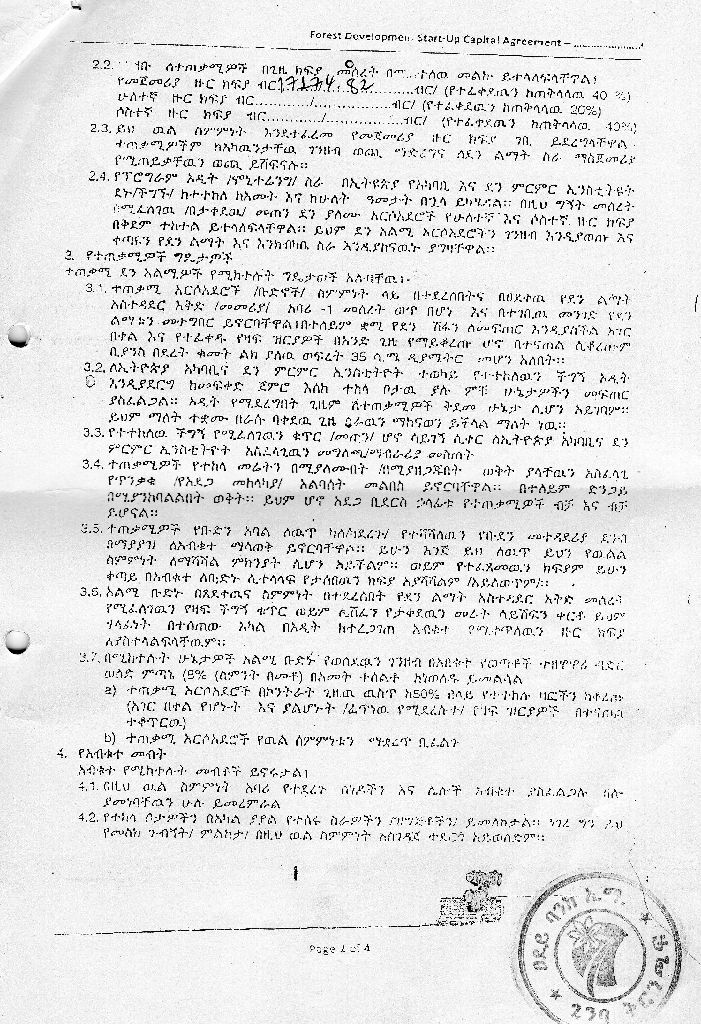 Forest Development Start-Up Capital Agreement –
2.2. ለተጠቃሚዎች በጊዜ ክፍያ መሰረት መልኩ ይተላለፍላቸዋል፤
የመጀመሪያ ዙር ክፍያ ብር 17174.82 ብር/ (የተፈቀደዉን ከጠቅላላዉ 40 %)
ሁለተኛ ዙር ክፍያ ብር............/................ብር/ (የተፈቀደዉን ከጠቅላላዉ 20%)
ሶስተኛ ዙር ክፍያ ብር............/................ብር/ (የተፈቀደዉን ከጠቅላላዉ 40%)
2.3. ይህ ዉል ስምምነት እንደተፈረመ የመጀመሪያ ዙር ክፍያ ገቢ ይደረግላቸዋል
ተጠቃሚዎችም ከአካዉንታቸዉ ገንዘብ ወጪ በማድረግ ለደን ልማት ስራ ማስጀመሪያ
የሚጠይቃቸዉን ወጪ ይሸፍናሉ።
2.4. የፕሮግራም ኦዲት /ሞኒተሪንግ/ ስራ በኢትዮጵያ የአካባቢ እና ደን ምርምር ኢንስቲትዩት
ደኑ/ችግኙ/ ከተተከለ ከአመት እና ከሁለት ዓመታት በኋላ ይካሄዳል። በዚህ ግኝት መሰረት
በሚፈለገዉ /በታቀደዉ/ መጠን ደን ያለሙ አርሶአደሮች የሁለተኛ እና ሶስተኛ ዙር ክፍያ
በቅደም ተከተል ይተላለፍላቸዋል። ይህም ደን አልሚ አርሶአደሮችን ገንዘብ እንዲያወጡ እና
ቀጣዩን የደን ልማት እና እንክብካቤ ስራ እንዲያከናዉኑ ያግዛቸዋል።
3. የተጠቃሚዎች ግዴታዎች
ተጠቃሚ ደን አልሚዎች የሚከተሉት ግዴታዎች አሉባቸዉ፤-
3.1. ተጠቃሚ አርሶአደሮች /ቡድኖች/ ስምምነት ላይ በተደረሰበትና በፀደቀዉ የደን ልማት
አስተዳደር እቅድ /መመሪያ/ አባሪ -1 መሰረት ወጥ በሆነ እና በተገቢዉ መንገድ የደን
ልማቱን መተግበር ይኖርባቸዋል፤በተለይም ቋሚ የደን ሽፋን ለመፍጠር እንዲያስችል አገር
በቀል እና የተፈቀዱ የዛፍ ዝርያዎች በአንድ ጊዜ የማይቆረጡ ሆኖ በተናጠል ሲቆረጡም
ቢያንስ በደረት ቁመት ልክ ያለዉ ወፍረት 35 ሳ.ሜ ዲያሜትር መሆን አለበት።
3.2. ለኢትዮጵያ አካባቢና ደን ምርምር ኢንስቲትዮት ተወካይ የተተከለዉን ችግኝ ኦዲት
እንዲያደርግ ከመፍቀድ ጀምሮ እስከ ተከላ ቦታዉ ያሉ ምቹ ሁኔታዎችን መፍጠር
ያስፈልጋል። ኦዲት የሚደረግበት ጊዜም ለተጠቃሚዎች ቅድመ ሁኔታ ሊሆን አይገባም።
ይህም ማለት ተቋሙ በራሱ ባቀደዉ ጊዜ ስራዉን ማከናወን ይችላል ማለት ነዉ።
3.3. የተተከለዉ ችግኝ የሚፈለገዉን ቁጥር /መጠን/ ሆኖ ሳይገኝ ሲቀር ለኢትዮጵያ አካባቢና ደን
ምርምር ኢንስቲትዮት አስፈላጊዉን መግለጫ/ማብራሪያ መስጠት
3.4. ተጠቃሚዎች የተከላ መሬትን በሚያለሙበት /በሚያዘጋጁበት ወቅት ያላቸዉን አስፈላጊ
የጥንቃቄ /የአደጋ መከላከያ/ አልባሳት መልበስ ይኖርባቸዋል። በተለይም ድንጋይ
በሚያንከባልልበት ወቅት። ይህም ሆኖ አደጋ ቢደርስ ኃላፊቱ የተጠቃሚዎች ብቻ እና ብቻ
ይሆናል።
3.5. ተጠቃሚዎች የቡድን አባል ለዉጥ ካለ/ከደረገ/ የተሻሻለዉን የቡድን መተዳደሪያ ደንብ
በማያያዝ ለአብቁተ ማሳወቅ ይኖርባቸዋል። ይሁን እንጅ ይህ ለዉጥ ይህን የዉል
ስምምነት ለማሻሻል ምክንያት ሊሆን አይችልም። ወይም የተፈጸመዉን ክፍያም ይሁን
ቀጣይ በአብቁተ ለቡድኑ ሊተላለፍ የታሰበዉን ክፍያ አያሻሽልም /አይለዉጥም/።
3.6. አልሚ ቡድኑ በጸደቀዉና ስምምነት በተደረሰበት የደን ልማት አስተዳደር እቅድ መሰረት
የሚፈለገዉን የዛፍ ችግኝ ቁጥር ወይም ሊሸፈን የታቀደዉን መሬት ሳይሸፍን ቀርቶ ይህም
ገላፊነት በተሰጠው አካል በኦዲት ከተረጋገጠ አብቁተ የሚቀጥለዉን ዙር ክፍያ
ላያስተላልፍላቸዉም።
3.7. በሚከተሉት ሁኔታዎች አልሚ ቡድኑ የወሰደዉን ገንዘብ በአብቁተ የወጣቶች ተዘዋዋሪ ብድር
ወለድ ምጣኔ (8% (ስምንት በመቶ) በአመት ተሰልቶ ይመልሳል
a) ተጠቃሚ አርሶአደሮች በኮንትራት ጊዜዉ ዉስጥ ከ50% በላይ የተተከሉ ዛፎችን ከቆረጡ
(አገር በቀል የሆኑት እና ያልሆኑት /ፈጥነዉ የሚደረሱት/ የዛፍ ዝርያዎች በተናጠል
ተቆጥርዉ)
b) ተጠቃሚ አርሶአደሮች የዉል ስምምነቱን ማቋረጥ ቢፈልጉ
4. የአብቁተ መብት
አብቁተ የሚከተሉት መብቶች ይኖሩታል፤
4.1. በዚህ ዉል ስምምነት አባሪ የተደረጉ ሰነዶችን እና ሌሎች አብቁተ ያስፈልጋሉ ብሎ
ያመነባቸዉን ሁሉ ይመረምራል
4.2. የተከላ ቦታዎችን በአካል ያያል የተሰሩ ስራዎችን ይመለከታል። ነገር ግን ይህ
የመስክ ጉብኝት/ ምልከታ/ በዚህ ዉል ስምምነት አስገዳጅ ተደርጎ አይወሰድም።
Page 2 of 4
ፀደይ ባንክ አ.ማ.
239